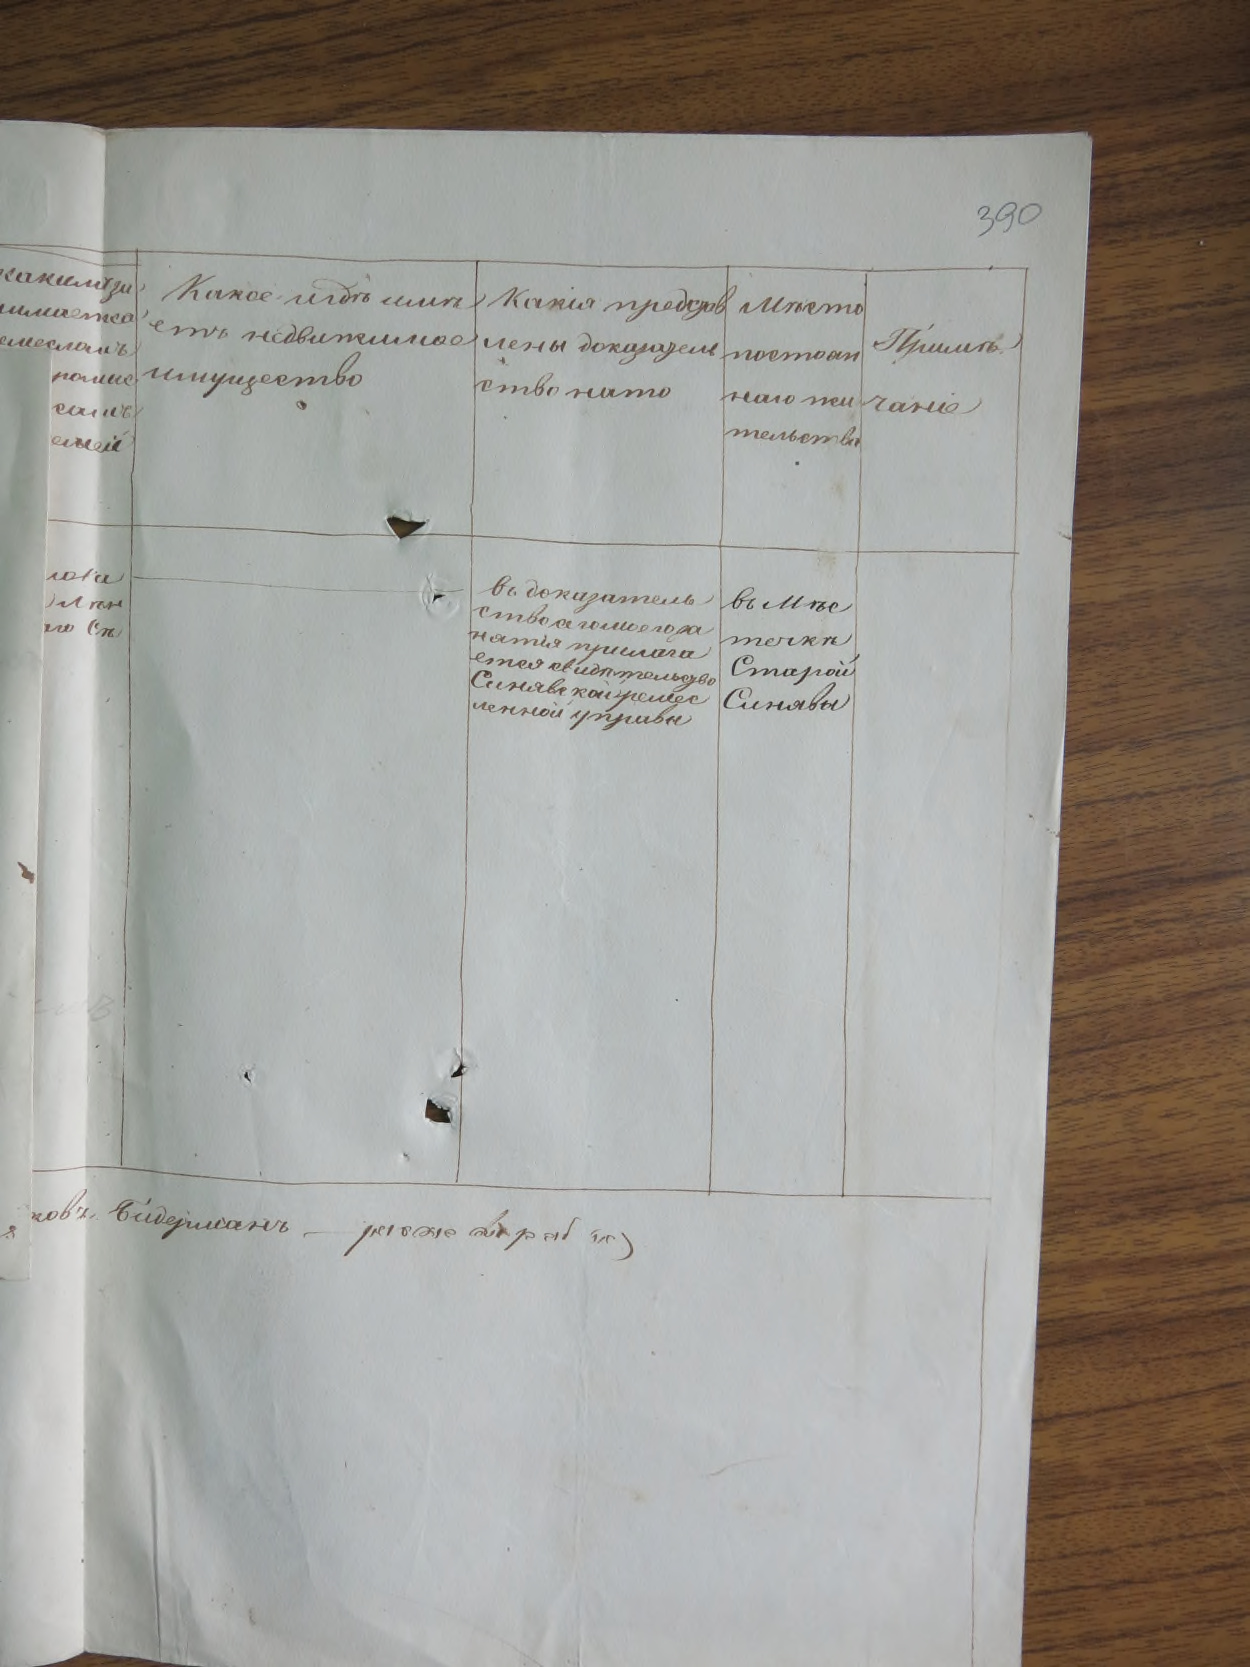 390
какимъ за
имается
емесломъ
ромыс
ломъ
Какое и гдѣ имѣ
етъ недвижимое
имущество
Какія представ
лены доказатель
ство на то
Мѣсто
постоян
наго жи
тельства
Примѣ
чаніе
въ доказатель
нятія прилага
ется свидѣтельство
Синявской ремес
ленной управы
въ Мѣс
течкѣ
Старой
Синявы
ковъ Бидерманъ —